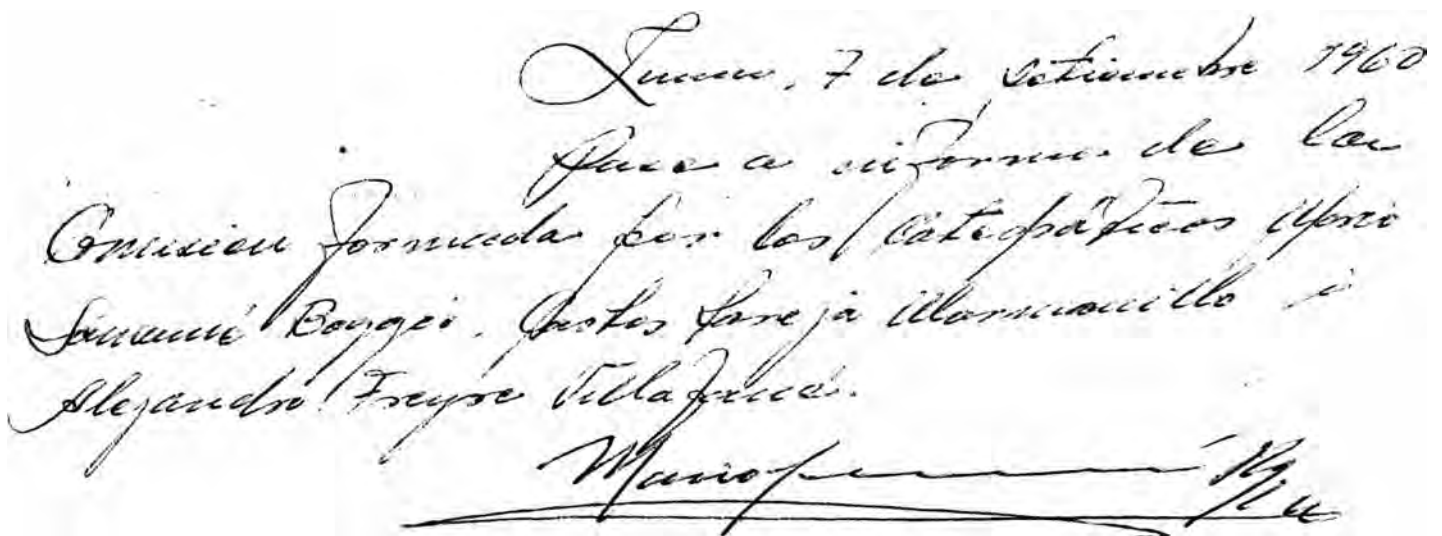 Lima, 7 de setiembre 1960
Pase a informe de la
Comisión formada por los Catedráticos Mario
Samamé Boggio, Carlos Pareja Marmanillo i
Alejandro Freyre Villafañe.
Mario